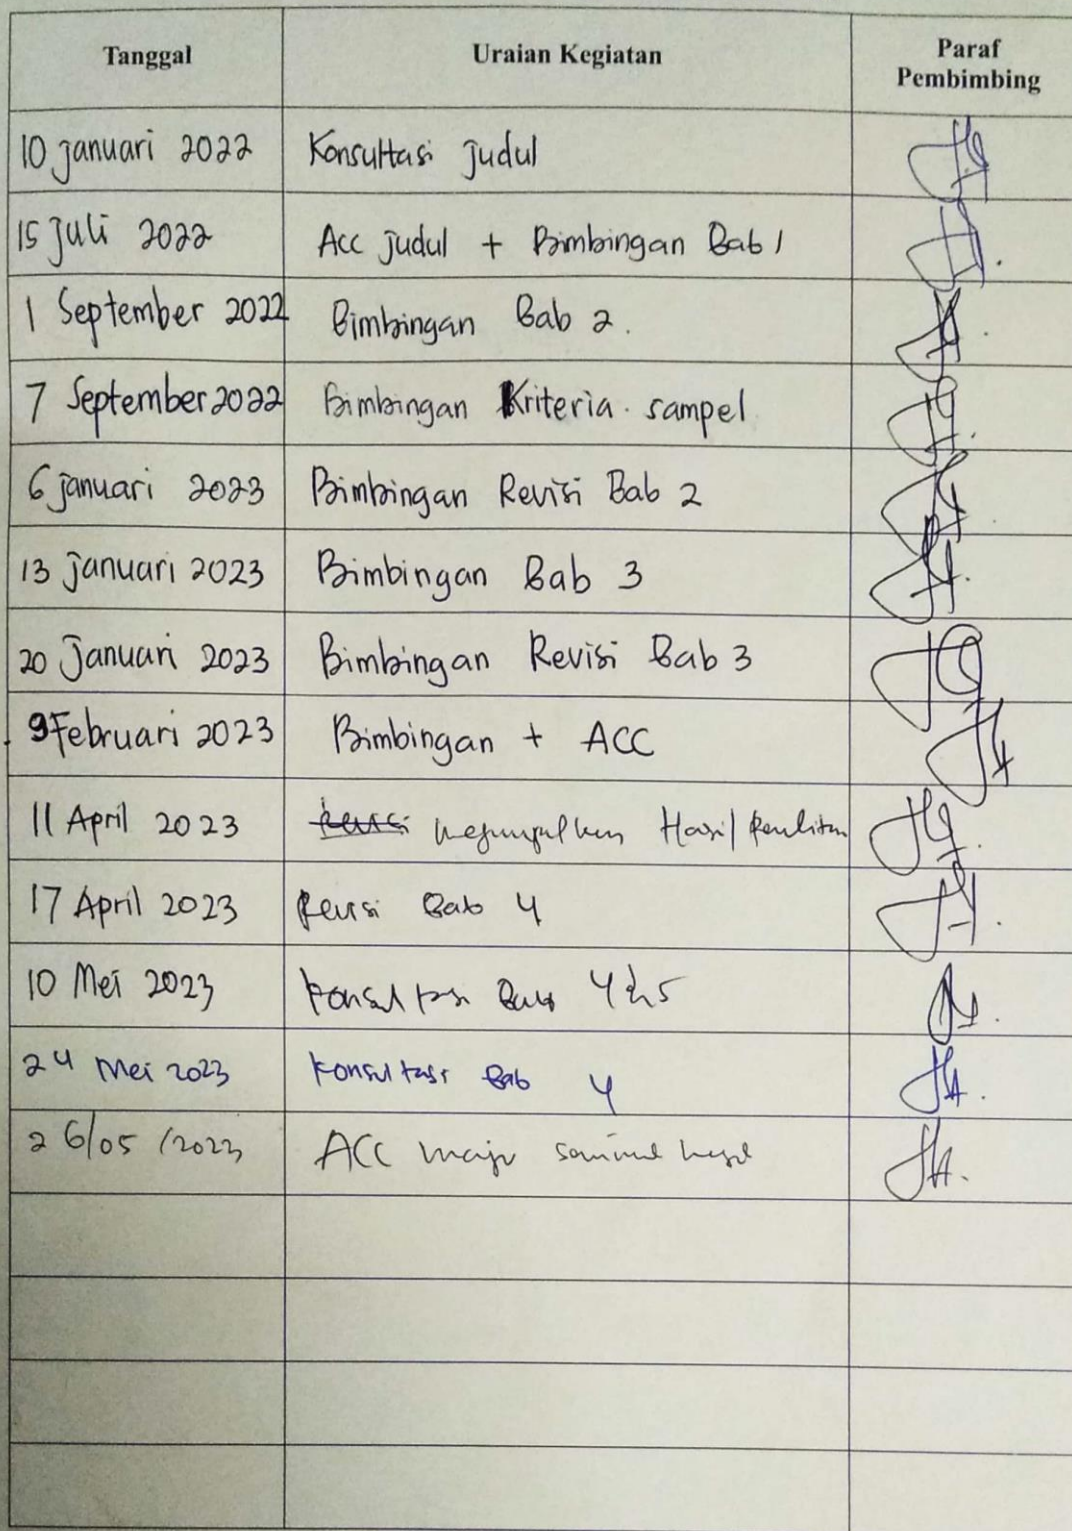 Tanggal Uraian Kegiatan Paraf Pembimbing
10 januari 2022 Konsultasi judul
15 juli 2022 Acc judul + Bimbingan Bab 1
1 September 2022 Bimbingan Bab 2.
7 September 2022 Bimbingan Kriteria sampel
6 januari 2023 Bimbingan Revisi Bab 2
13 januari 2023 Bimbingan Bab 3
20 Januari 2023 Bimbingan Revisi Bab 3
9 Februari 2023 Bimbingan + ACC
11 April 2023 Hasil
17 April 2023 Revisi Bab 4
10 Mei 2023 Konsultasi Bab 4 & 5
24 Mei 2023 Konsultasi Bab 4
26/05/2023 ACC maju